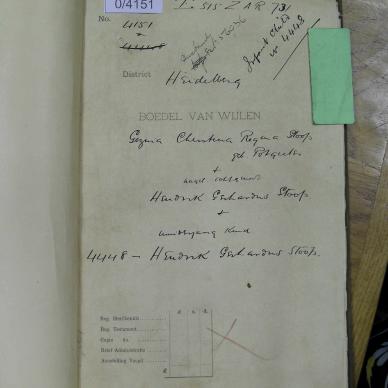 0/4151
I. SIS ZAR 73
No. 4151
4448
Infant Child
№ 4448
District Heidelberg
BOEDEL VAN WIJLEN
Gezina Christina Regina Stoop
geb. Potgieter
+
Hendrik Gerhardus Stoop
+
Kind
4448 – Hendrik Gerhardus Stoop.
£ s. d.
Reg. Sterfkennis
Reg. Testament
Copie do.
Brief Administratie
Aanstelling Voogd
£